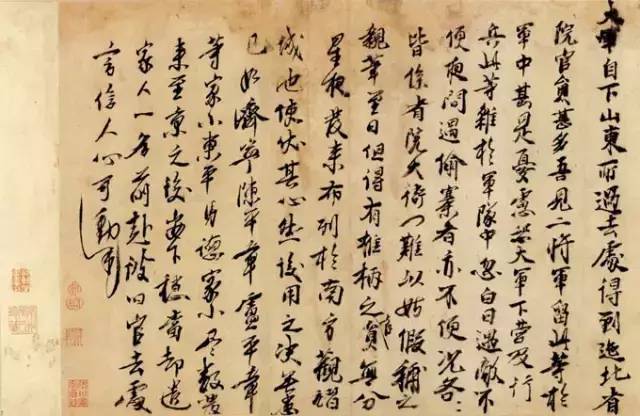 大軍自下山東所過去處得到迤北省
院官員甚多吾見二將軍留此等於
軍中甚是憂慮恐大軍下營及行
兵此等雜於軍隊中忽白日遇敵不
便夜間遇偷寨者亦不便況各各
皆係省院大衙門難以姑假補之
親筆至日但得有椎柄之官員無分
星夜發來布列於南方觀玩
城池使伏其心然後用之決無患
已如濟寧陳平章盧平章
等家小東平馬德家小尽數發
來至京之後安下穩當却遣
家人一名前赴彼旧官去處
言信人心可動